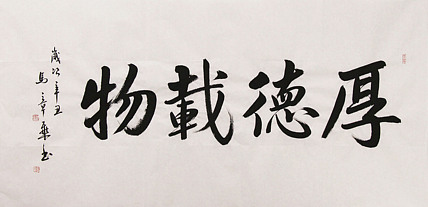 厚德載物
歲次辛丑
馬章乘書